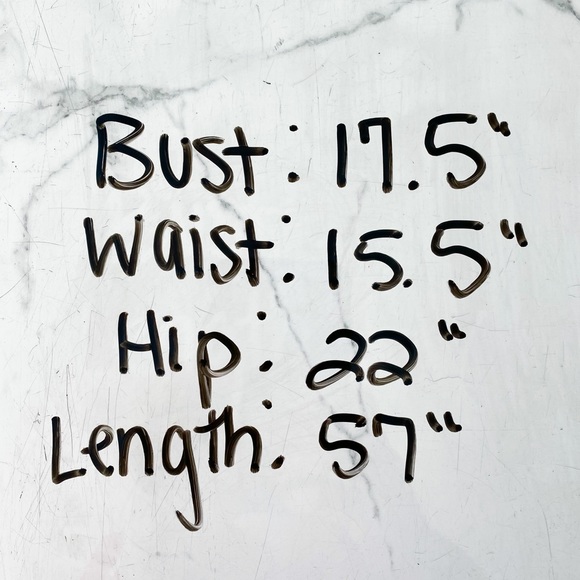 Bust: 17.5"
Waist: 15.5"
Hip: 22"
Length: 57"